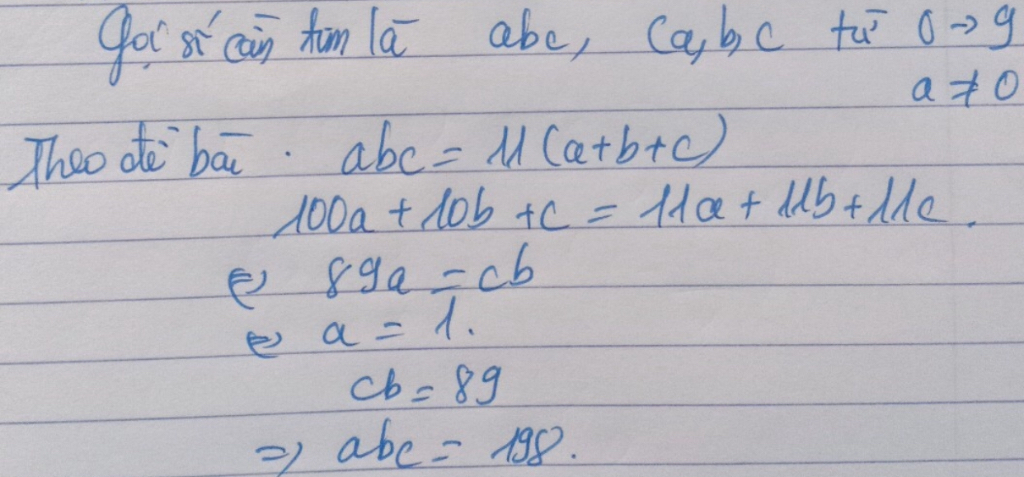 Gọi số cần tìm là abc, (a,b,c từ 0 → 9
a ≠ 0
Theo đề bài . abc = 11 (a+b+c)
100a + 10b + c = 11a + 11b + 11c .
⇔ 89a = cb
⇔ a = 1.
cb = 89
=> abc = 198.